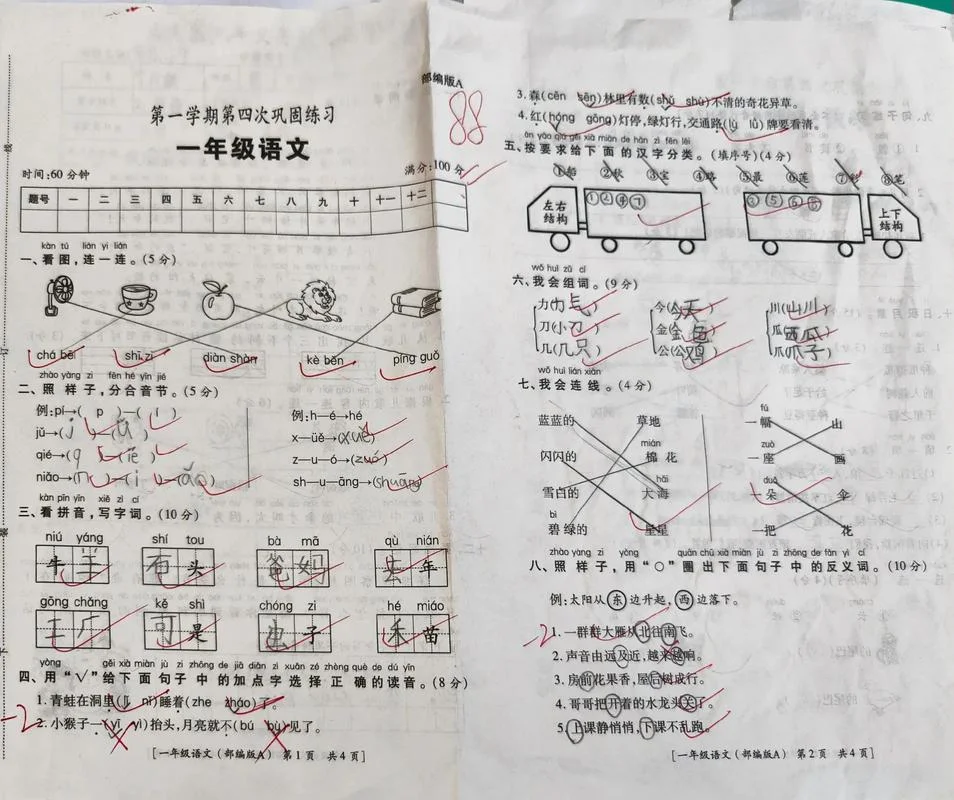 部编版A
88
第一学期第四次巩固练习
一年级语文
时间:60分钟 满分:100分
题号 一 二 三 四 五 六 七 八 九 十 十一 十二
kàn tú lián yi lián
一、看图,连一连。(5分)
chá bēi shī zi diàn shàn kè běn píng guǒ
zhào yàng zi fēn hé yīn jié
二、照样子,分合音节。(5分)
例:pí→( p )—( í ) 例:h—é→hé
jǔ→( j )—( ǔ ) x—üě→(xuě)
qié→(q)—(ié) z—u—ó→(zuó)
niǎo→(n)—(i)—(ǎo) sh—u—āng→(shuāng)
kàn pīn yīn xiě zì cí
三、看拼音,写字词。(10分)
niú yáng shí tou bà mā qù nián
牛 羊 石 头 爸 妈 去 年
gōng chǎng kě shì chóng zi hé miáo
工 厂 可 是 虫 子 禾 苗
yòng gěi xià miàn jù zi zhōng de jiā diǎn zì xuǎn zé zhèng què de dú yīn
四、用“√”给下面句子中的加点字选择正确的读音。(8分)
1.青蛙在洞里(lǐ nǐ)睡着(zhe zháo)了。
-2
2.小猴子一(yī yì)抬头,月亮就不(bú bù)见了。
[一年级语文(部编版A) 第1页 共4页]
3.森(cēn sēn)林里有数(shǔ shù)不清的奇花异草。
4.红(hóng gōng)灯停,绿灯行,交通路(lù lǜ)牌要看清。
àn yāo qiú gěi xià miàn de hàn zì fēn lèi
五、按要求给下面的汉字分类。(填序号)(4分)
①船 ②秋 ③宝 ④路 ⑤最 ⑥莲 ⑦秒 ⑧笔
左右结构 ①②④⑦ ③⑤⑥⑧ 上下结构
wǒ huì zǔ cí
六、我会组词。(9分)
力(力气) 今(今天) 川(山川)
刀(小刀) 金(金色) 瓜(西瓜)
几(几只) 公(公鸡) 爪(爪子)
wǒ huì lián xiàn
七、我会连线。(4分)
蓝蓝的 草地 一幅 fú 山
闪闪的 棉花 mián 一座 zuò 画
雪白的 大海 hǎi 一朵 duǒ 伞
碧绿的 bì 星星 一把 花
zhào yàng zi yòng quān chū xià miàn jù zi zhōng de fǎn yì cí
八、照样子,用“○”圈出下面句子中的反义词。(10分)
例:太阳从东边升起,西边落下。
-2
1.一群群大雁从北往南飞。
2.声音由远及近,越来越响。
3.房前花果香,屋后树成行。
4.哥哥把开着的水龙头关了。
5.上课静悄悄,下课不乱跑。
[一年级语文(部编版A) 第2页 共4页]